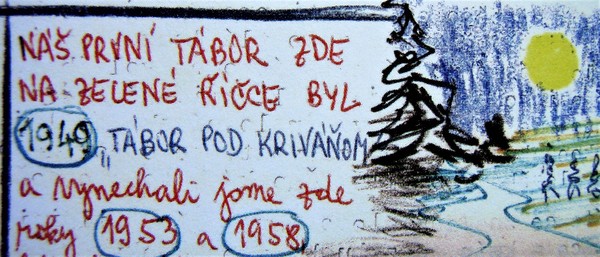 NÁŠ PRVNÍ TÁBOR ZDE
NA ZELENÉ ŘÍČCE BYL
1949 „TÁBOR POD KRIVÁŇOM
a vynechali jsme zde
roky 1953 a 1958